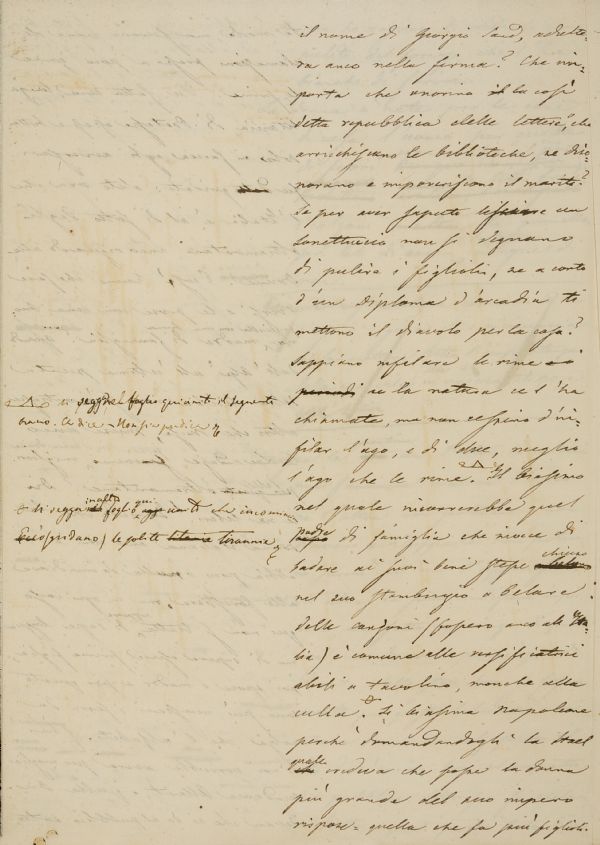 il nome di Giorgio Sand, adulte-
ra anco nella firma? Che im-
porta che onorino la così
detta repubblica delle lettere, che
arrichiscano le biblioteche, se diso-
norano e impoveriscono il marito?
Se per aver saputo un
sonettuccio non si degnano
di pulire i figlioli, se a conto
d'un Diploma d'arcadia ti
mettono il diavolo per la casa?
Sappiano infilare le rime
periodi se la natura ce l'ha
chiamate, ma non cessino d'in-
filar l'ago, e di due, meglio
l'ago che le rime. Il biasimo
nel quale incorrerebbe quel
padre di famiglia che invece di
badare ai suoi beni stesse chiuso
nel suo stambugio a belare
delle canzoni (fossero anco all'Ita-
lia) è comune alle versificatrici
abili a tavolino, monche alla
culla. Si biasima Napoleone
perchè domandandogli la Stael
quale credeva che fosse la donna
più grande del suo impero
rispose = quella che fa più figlioli.
si segga nel foglio qui unito il seguente
brano. Ce dice = Non
si legga nel foglio qui unito che incomincia
(gridano) le solite tirannie